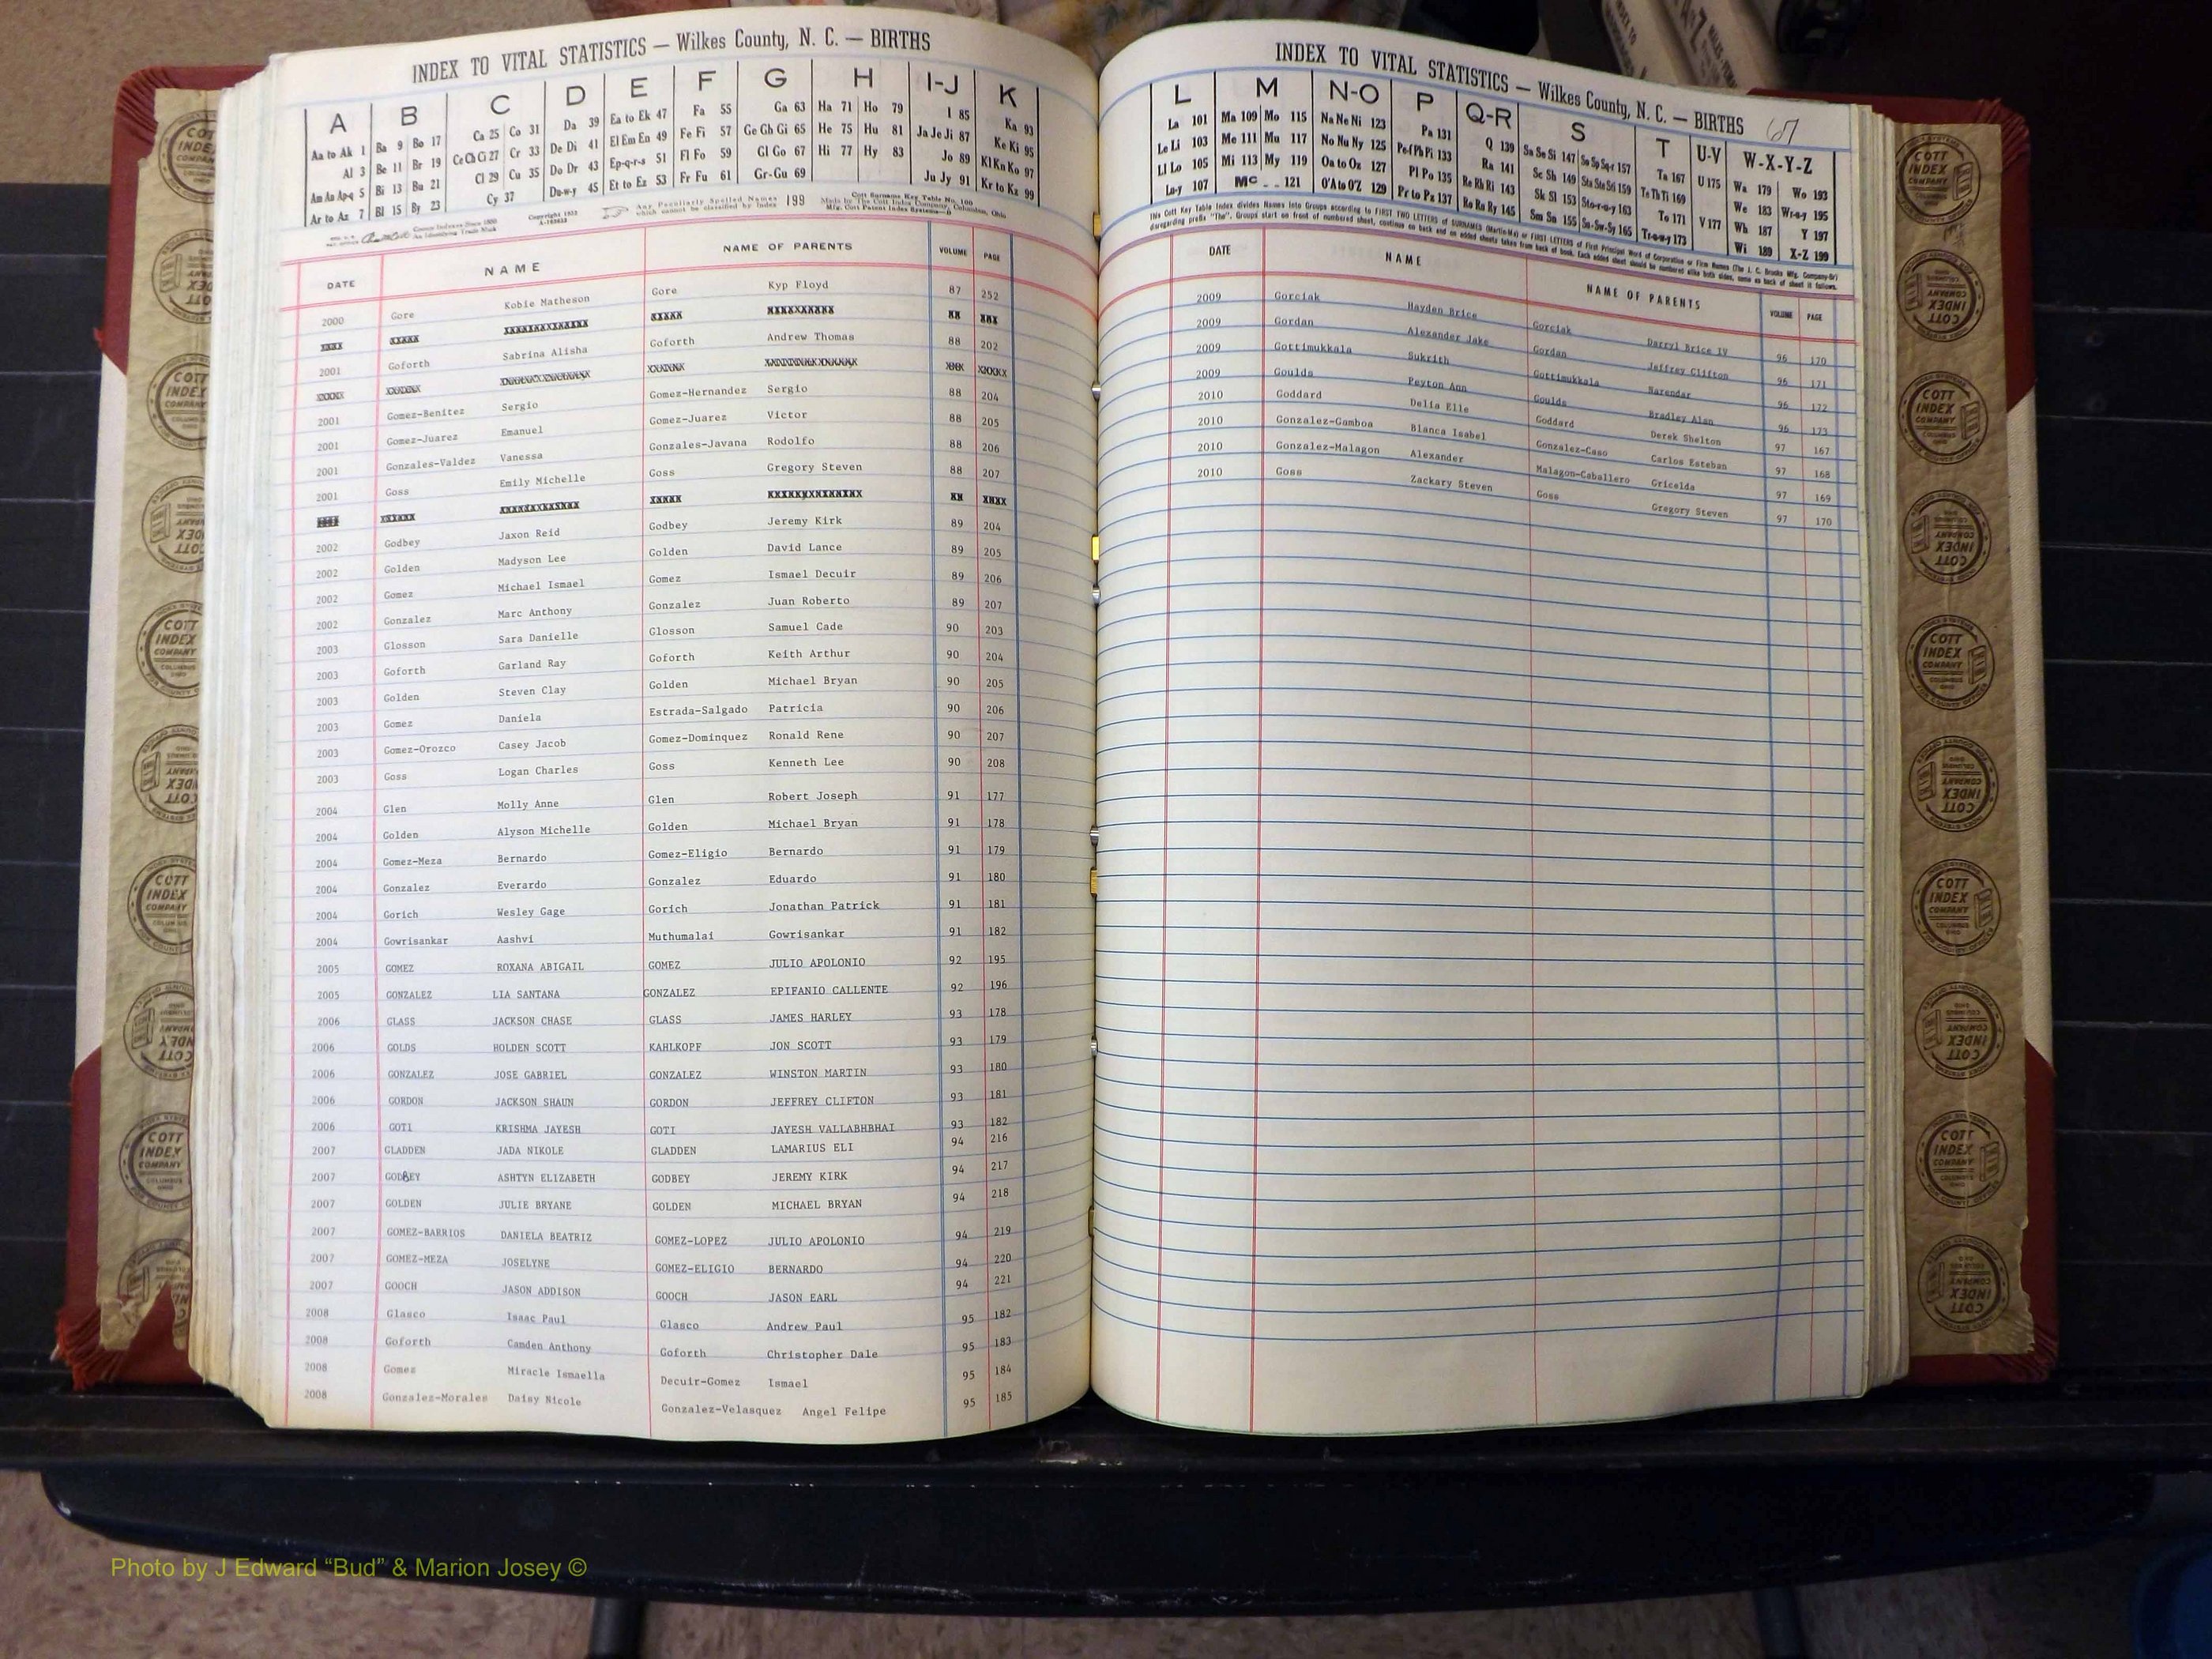 INDEX TO VITAL STATISTICS — Wilkes County, N. C. — BIRTHS
A B C D E F G H I-J K
Aa to Ak 1 Ba 9 Bo 17 Ca 25 Co 31 Da 39 Ea to Ek 47 Fa 55 Ga 63 Ha 71 Ho 79 I 85 Ka 93
Al 3 Be 11 Br 19 Ce Ch Ci 27 Cr 33 De Di 41 El Em En 49 Fe Fi 57 Ge Gh Gi 65 He 75 Hu 81 Ja Je Ji 87 Ke Ki 95
Am An Ap-q 5 Bi 13 Bu 21 Cl 29 Cu 35 Do Dr 43 Ep-q-r-s 51 Fl Fo 59 Gl Go 67 Hi 77 Hy 83 Jo 89 Kl Kn Ko 97
Ar to Az 7 Bl 15 By 23 Cy 37 Du-w-y 45 Et to Ez 53 Fr Fu 61 Gr-Gu 69 Ju Jy 91 Kr to Kz 99
Any Peculiarly Spelled Names which cannot be classified by Index 199
Cott Surname Key Table No. 100
Made by The Cott Index Company, Columbus, Ohio
DATE NAME NAME OF PARENTS VOLUME PAGE
2000 Gore Kobie Matheson Gore Kyp Floyd 87 252
2001 Goforth Sabrina Alisha Goforth Andrew Thomas 88 202
2001 Gomez-Benitez Sergio Gomez-Hernandez Sergio 88 204
2001 Gomez-Juarez Emanuel Gomez-Juarez Victor 88 205
2001 Gonzales-Valdez Vanessa Gonzales-Javana Rodolfo 88 206
2001 Goss Emily Michelle Goss Gregory Steven 88 207
2002 Godbey Jaxon Reid Godbey Jeremy Kirk 89 204
2002 Golden Madyson Lee Golden David Lance 89 205
2002 Gomez Michael Ismael Gomez Ismael Decuir 89 206
2002 Gonzalez Marc Anthony Gonzalez Juan Roberto 89 207
2003 Glosson Sara Danielle Glosson Samuel Cade 90 203
2003 Goforth Garland Ray Goforth Keith Arthur 90 204
2003 Golden Steven Clay Golden Michael Bryan 90 205
2003 Gomez Daniela Estrada-Salgado Patricia 90 206
2003 Gomez-Orozco Casey Jacob Gomez-Dominquez Ronald Rene 90 207
2003 Goss Logan Charles Goss Kenneth Lee 90 208
2004 Glen Molly Anne Glen Robert Joseph 91 177
2004 Golden Alyson Michelle Golden Michael Bryan 91 178
2004 Gomez-Meza Bernardo Gomez-Eligio Bernardo 91 179
2004 Gonzalez Everardo Gonzalez Eduardo 91 180
2004 Gorich Wesley Gage Gorich Jonathan Patrick 91 181
2004 Gowrisankar Aashvi Muthumalai Gowrisankar 91 182
2005 GOMEZ ROXANA ABIGAIL GOMEZ JULIO APOLONIO 92 195
2005 GONZALEZ LIA SANTANA GONZALEZ EPIFANIO CALLENTE 92 196
2006 GLASS JACKSON CHASE GLASS JAMES HARLEY 93 178
2006 GOLDS HOLDEN SCOTT KAHLKOPF JON SCOTT 93 179
2006 GONZALEZ JOSE GABRIEL GONZALEZ WINSTON MARTIN 93 180
2006 GORDON JACKSON SHAUN GORDON JEFFREY CLIFTON 93 181
2006 GOTI KRISHMA JAYESH GOTI JAYESH VALLABHBHAI 93 182
2007 GLADDEN JADA NIKOLE GLADDEN LAMARIUS ELI 94 216
2007 GODBEY ASHTYN ELIZABETH GODBEY JEREMY KIRK 94 217
2007 GOLDEN JULIE BRYANE GOLDEN MICHAEL BRYAN 94 218
2007 GOMEZ-BARRIOS DANIELA BEATRIZ GOMEZ-LOPEZ JULIO APOLONIO 94 219
2007 GOMEZ-MEZA JOSELYNE GOMEZ-ELIGIO BERNARDO 94 220
2007 GOOCH JASON ADDISON GOOCH JASON EARL 94 221
2008 Glasco Isaac Paul Glasco Andrew Paul 95 182
2008 Goforth Camden Anthony Goforth Christopher Dale 95 183
2008 Gomez Miracle Ismaella Decuir-Gomez Ismael 95 184
2008 Gonzalez-Morales Daisy Nicole Gonzalez-Velasquez Angel Felipe 95 185
INDEX TO VITAL STATISTICS — Wilkes County, N. C. — BIRTHS 67
L M N-O P Q-R S T U-V W-X-Y-Z
La 101 Ma 109 Mo 115 Na Ne Ni 123 Pa 131 Q 139 Sa Se Si 147 Sn Sp Sq-r 157 Ta 167 U 175 Wa 179 Wo 193
Le Li 103 Me 111 Mu 117 No Nu Ny 125 Pe-f Ph Pi 133 Ra 141 Sc Sh 149 Sta Ste Sti 159 Te Th Ti 169 We 183 Wr-u-y 195
Ll Lo 105 Mi 113 My 119 Oa to Oz 127 Pl Po 135 Re Rh Ri 143 Sk Sl 153 Sto-r-u-y 163 To 171 V 177 Wh 187 Y 197
Lu-y 107 Mc 121 O'A to O'Z 129 Pr to Pz 137 Ro Ru Ry 145 Sm Sn 155 Su-Sw-Sy 165 Tr-u-w-y 173 Wi 189 X-Z 199
DATE NAME NAME OF PARENTS VOLUME PAGE
2009 Gorciak Hayden Brice Gorciak Darryl Brice IV 96 170
2009 Gordan Alexander Jake Gordan Jeffrey Clifton 96 171
2009 Gottimukkala Sukrith Gottimukkala Narendar 96 172
2009 Goulds Peyton Ann Goulds Bradley Alan 96 173
2010 Goddard Delia Elle Goddard Derek Shelton 97 167
2010 Gonzalez-Gamboa Blanca Isabel Gonzalez-Caso Carlos Esteban 97 168
2010 Gonzalez-Malagon Alexander Malagon-Caballero Gricelda 97 169
2010 Goss Zackary Steven Goss Gregory Steven 97 170
COTT INDEX COMPANY COLUMBUS OHIO
Photo by J Edward “Bud” & Marion Josey ©